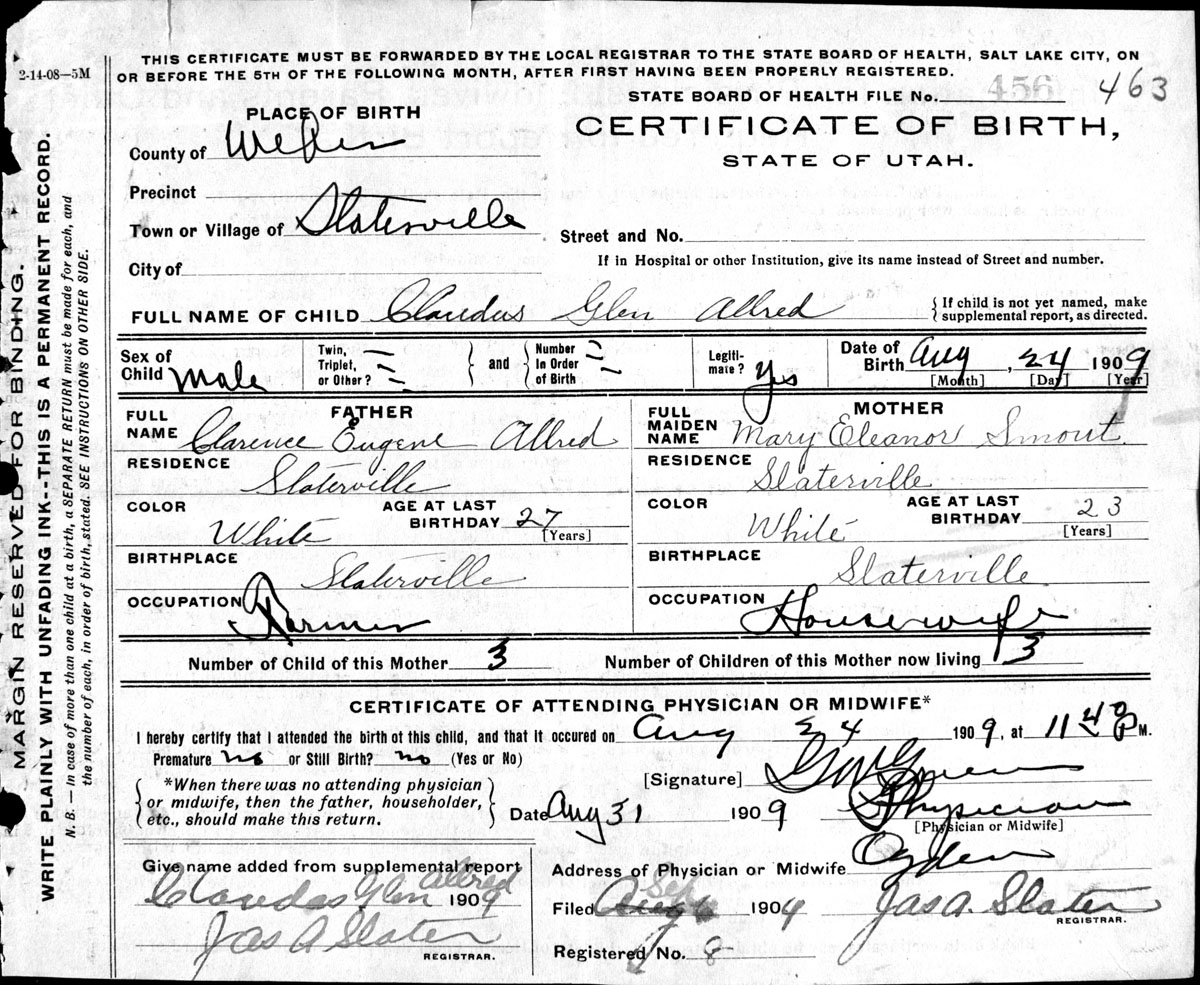 2-14-08—5M
THIS CERTIFICATE MUST BE FORWARDED BY THE LOCAL REGISTRAR TO THE STATE BOARD OF HEALTH, SALT LAKE CITY, ON
OR BEFORE THE 5TH OF THE FOLLOWING MONTH, AFTER FIRST HAVING BEEN PROPERLY REGISTERED.
STATE BOARD OF HEALTH FILE No. 456 463
PLACE OF BIRTH
CERTIFICATE OF BIRTH,
STATE OF UTAH.
County of Weber
Precinct
Town or Village of Slaterville
Street and No.
If in Hospital or other Institution, give its name instead of Street and number.
City of
FULL NAME OF CHILD Claudus Glen Allred
{ If child is not yet named, make
supplemental report, as directed.
Sex of
Child Male
Twin,
Triplet,
or Other?
} and {
Number
In Order
of Birth
Legiti-
mate? Yes
Date of
Birth Aug, 24 1909
[Month] [Day] [Year]
FATHER
FULL
NAME Clarence Eugene Allred
RESIDENCE
Slaterville
COLOR
White
AGE AT LAST
BIRTHDAY 27
[Years]
BIRTHPLACE
Slaterville
OCCUPATION
Farmer
MOTHER
FULL
MAIDEN
NAME Mary Eleanor Smout
RESIDENCE
Slaterville
COLOR
White
AGE AT LAST
BIRTHDAY 23
[Years]
BIRTHPLACE
Slaterville
OCCUPATION
Housewife
Number of Child of this Mother 3
Number of Children of this Mother now living 3
CERTIFICATE OF ATTENDING PHYSICIAN OR MIDWIFE*
I hereby certify that I attended the birth of this child, and that it occured on Aug 24 1909, at 11 40 P M.
Premature no or Still Birth? no (Yes or No)
{ *When there was no attending physician
or midwife, then the father, householder,
etc., should make this return. }
[Signature]
Date Aug 31 1909
Physician
[Physician or Midwife]
Address of Physician or Midwife Ogden
Give name added from supplemental report
Claudas Glen Allred 1909
Jas A Slater
REGISTRAR.
Filed Aug 6 Sep 1909 Jas A. Slater
REGISTRAR.
Registered No. 8
MARGIN RESERVED FOR BINDING.
WRITE PLAINLY WITH UNFADING INK--THIS IS A PERMANENT RECORD.
N. B. — In case of more than one child at a birth, a SEPARATE RETURN must be made for each, and
the number of each, in order of birth, stated. SEE INSTRUCTIONS ON OTHER SIDE.